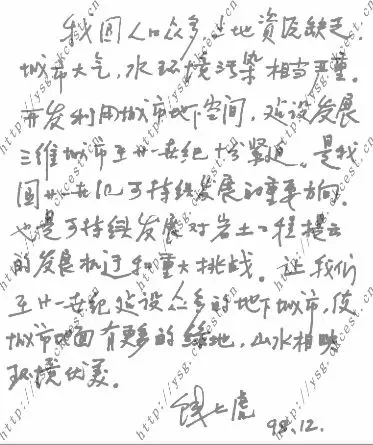 我国人口众多，土地资源缺乏，
城市大气，水环境污染相当严重。
开发利用城市地下空间，建设发展
三维城市在廿一世纪十分紧迫。是我
国廿一世纪可持续发展的重要方向。
也是可持续发展对岩土工程提出
的发展机遇和重大挑战。让我们
在廿一世纪建设众多的地下城市，使
城市地面有更多的绿地，山水相映
环境优美。
钱七虎
98.12.
http://ysg.ckcest.cn